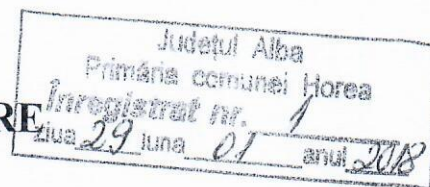 Județul Alba
Primăria comunei Horea
Înregistrat nr. 1
RE
ziua 29 luna 01 anul 2018